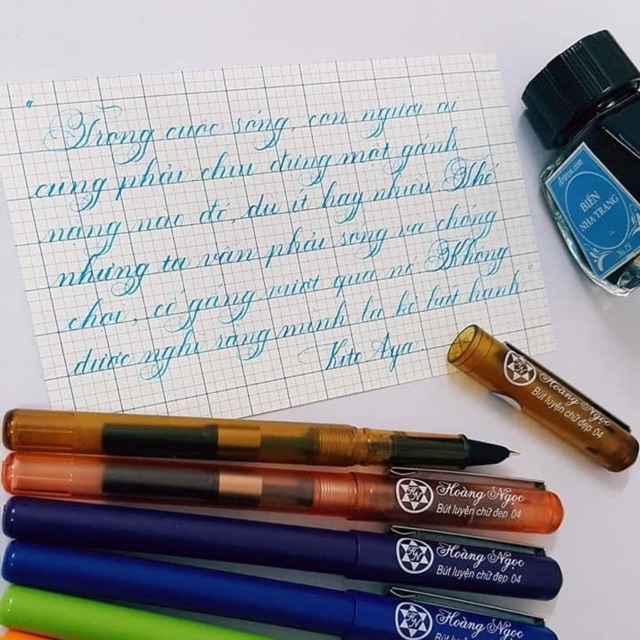 "Trong cuộc sống, con người ai
cũng phải chịu đựng một gánh
nặng nào đó, dù ít hay nhiều. Thế
nhưng ta vẫn phải sống và chống
chọi, cố gắng vượt qua nó. Không
được nghĩ rằng mình là kẻ bất hạnh"
Kito Aya.
BIỂN
NHA TRANG
Hoàng Ngọc
Bút luyện chữ đẹp 04
Hoàng Ngọc
Bút luyện chữ đẹp 04
Hoàng Ngọc
Bút luyện chữ đẹp 04
Hoàng Ngọc
Bút luyện chữ đẹp 04